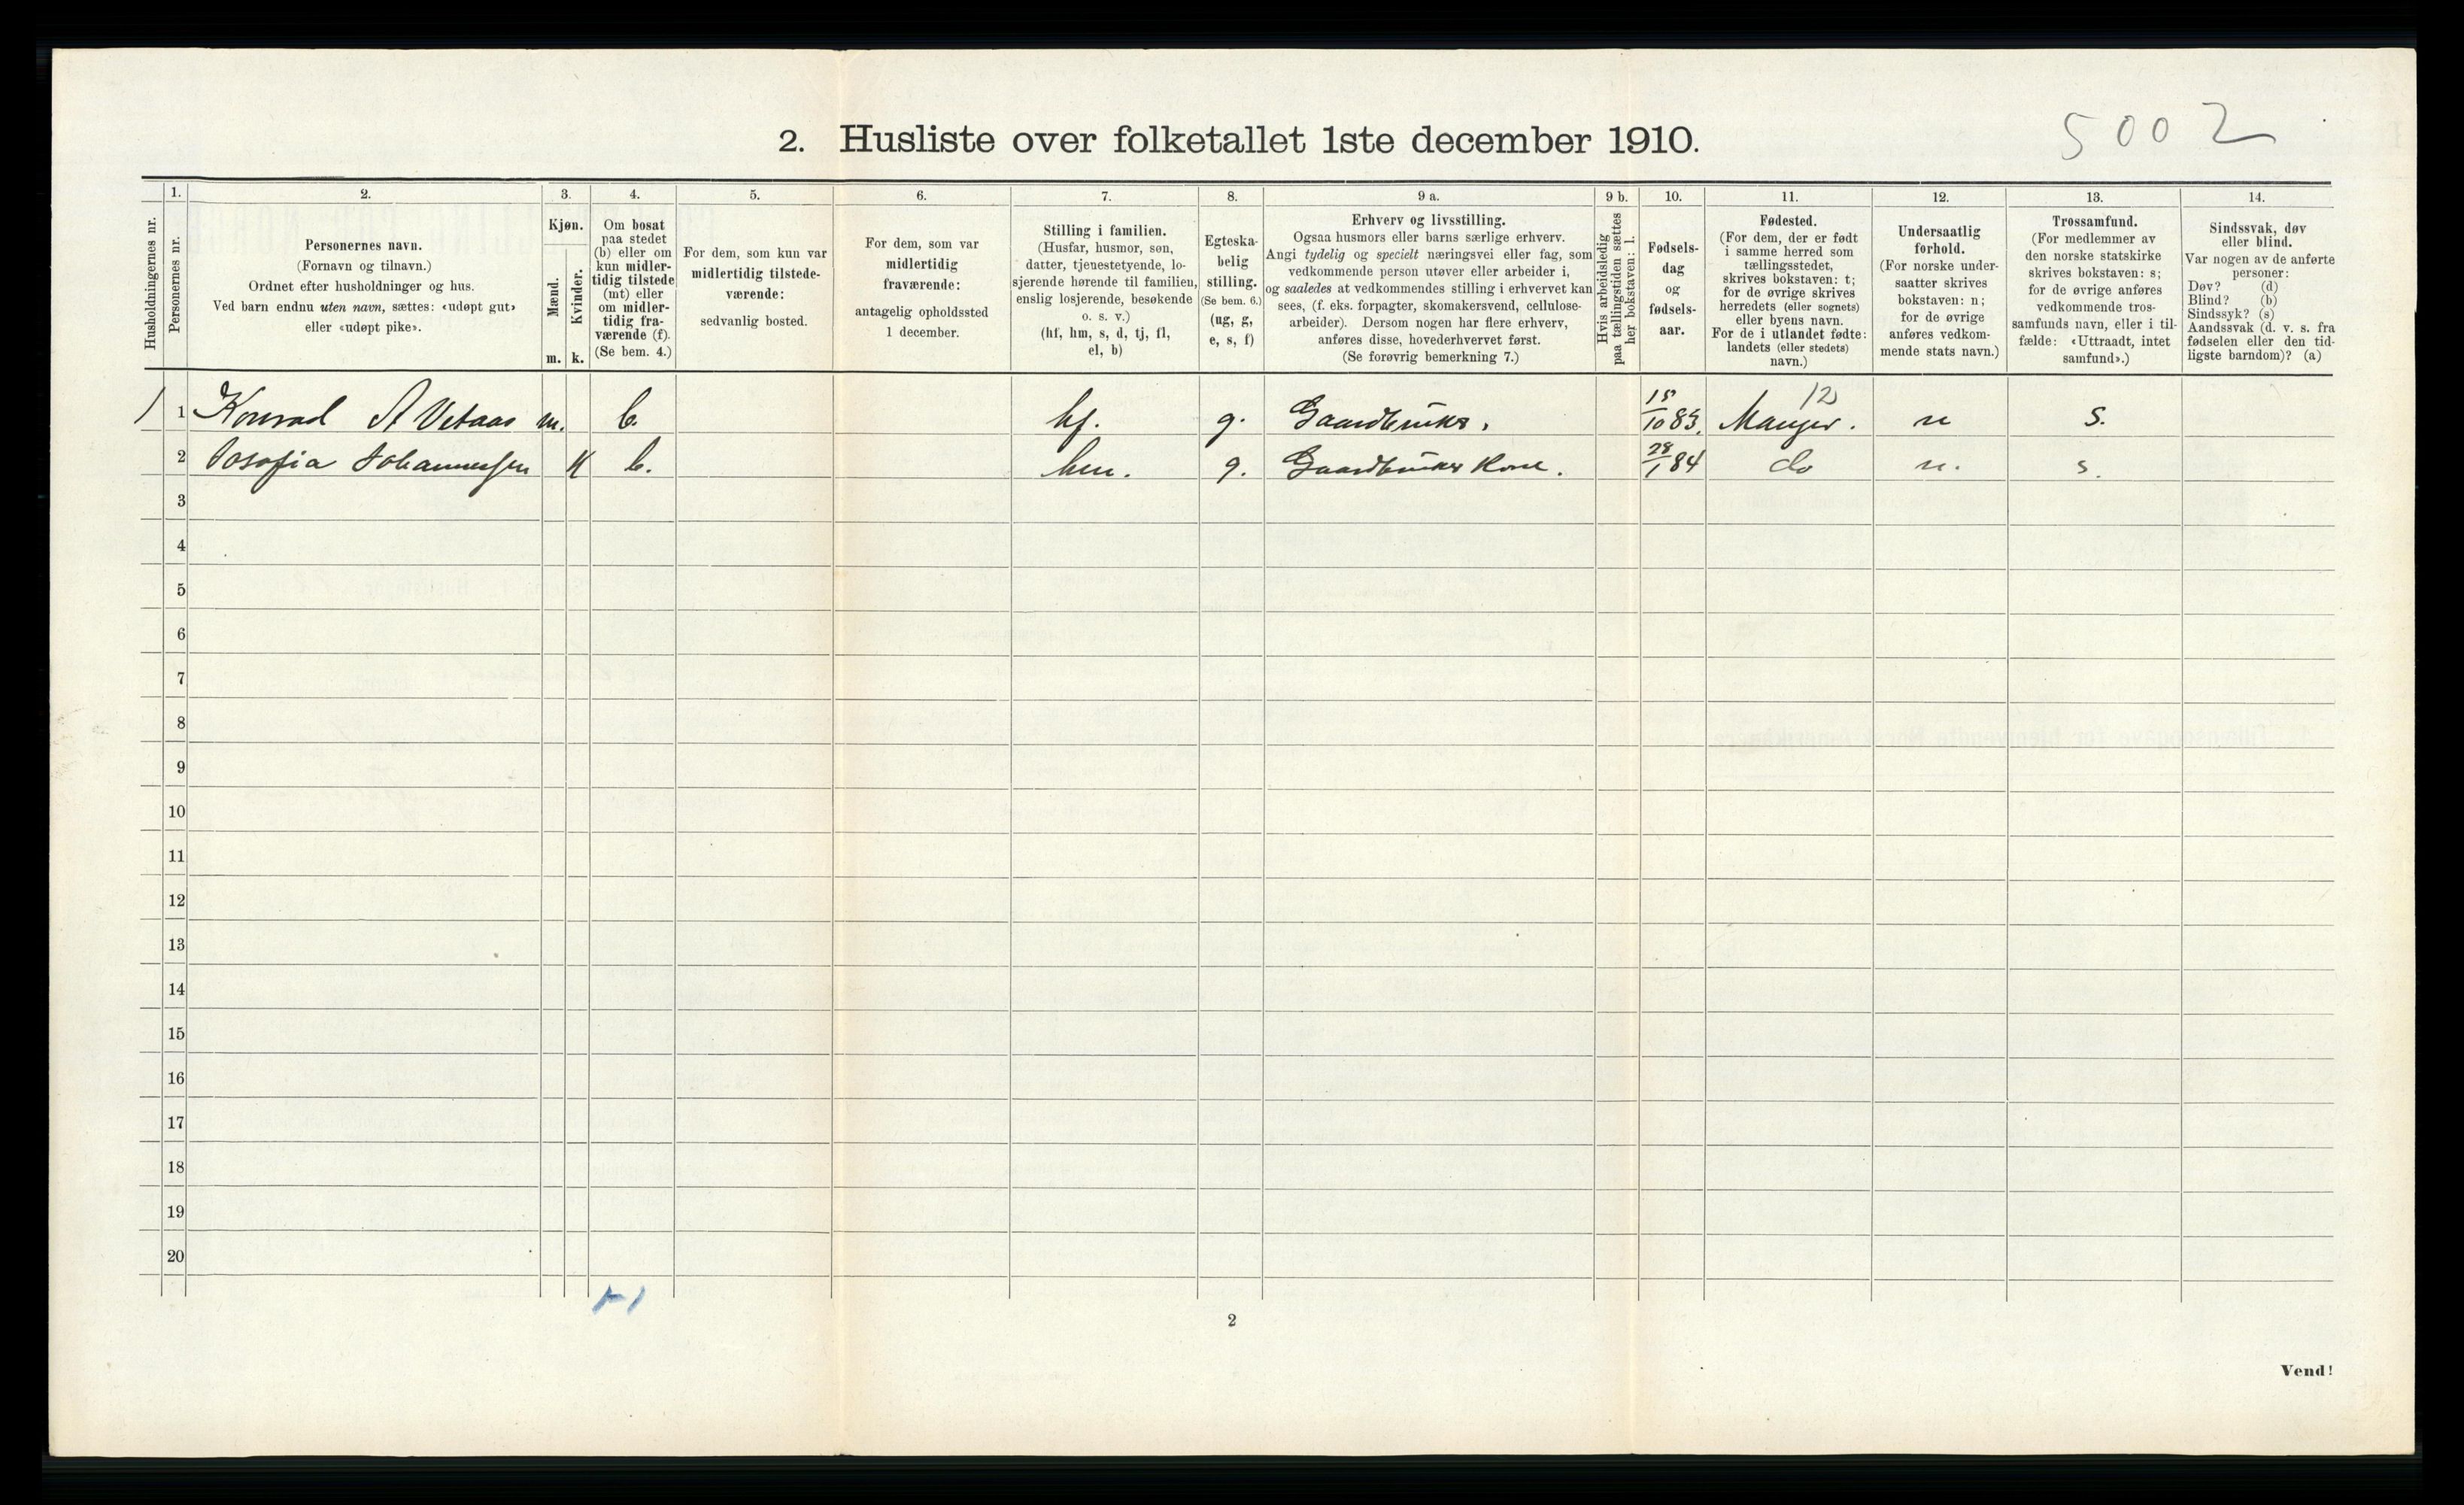 5002
2. Husliste over folketallet 1ste december 1910.
Husholdningernes nr.
1.
Personernes nr.
2.
Personernes navn.
(Fornavn og tilnavn.)
Ordnet efter husholdninger og hus.
Ved barn endnu uten navn, sættes: «udøpt gut»
eller «udøpt pike».
3.
Kjøn.
Mænd.
Kvinder.
m. k.
4.
Om bosat
paa stedet
(b) eller om
kun midler-
tidig tilstede
(mt) eller
om midler-
tidig fra-
værende (f).
(Se bem. 4.)
5.
For dem, som kun var
midlertidig tilstede-
værende:
sedvanlig bosted.
6.
For dem, som var
midlertidig
fraværende:
antagelig opholdssted
1 december.
7.
Stilling i familien.
(Husfar, husmor, søn,
datter, tjenestetyende, lo-
sjerende hørende til familien,
enslig losjerende, besøkende
o. s. v.)
(hf, hm, s, d, tj, fl,
el, b)
8.
Egteska-
belig
stilling.
(Se bem. 6.)
(ug, g,
e, s, f)
9 a.
Erhverv og livsstilling.
Ogsaa husmors eller barns særlige erhverv.
Angi tydelig og specielt næringsvei eller fag, som
vedkommende person utøver eller arbeider i,
og saaledes at vedkommendes stilling i erhvervet kan
sees, (f. eks. forpagter, skomakersvend, cellulose-
arbeider). Dersom nogen har flere erhverv,
anføres disse, hovederhvervet først.
(Se forøvrig bemerkning 7.)
9 b.
Hvis arbeidsledig
paa tællingstiden sættes
her bokstaven: l.
10.
Fødsels-
dag
og
fødsels-
aar.
11.
Fødested.
(For dem, der er født
i samme herred som
tællingsstedet,
skrives bokstaven: t;
for de øvrige skrives
herredets (eller sognets)
eller byens navn.
For de i utlandet fødte:
landets (eller stedets)
navn.)
12.
Undersaatlig
forhold.
(For norske under-
saatter skrives
bokstaven: n;
for de øvrige
anføres vedkom-
mende stats navn.)
13.
Trossamfund.
(For medlemmer av
den norske statskirke
skrives bokstaven: s;
for de øvrige anføres
vedkommende tros-
samfunds navn, eller i til-
fælde: «Uttraadt, intet
samfund».)
14.
Sindssvak, døv
eller blind.
Var nogen av de anførte
personer:
Døv? (d)
Blind? (b)
Sindssyk? (s)
Aandssvak (d. v. s. fra
fødselen eller den tid-
ligste barndom)? (a)
1 1 Konrad A Vetaas m. b. hf. g. Gaardbruker. 15/10 83. Manger. 12 n s.
2 Josefia Johannessen K b. hm. g. Gaardbruker Kone. 28/1 84 do n. s.
3
4
5
6
7
8
9
10
11
12
13
14
15
16
17
18
19
20
2
Vend!